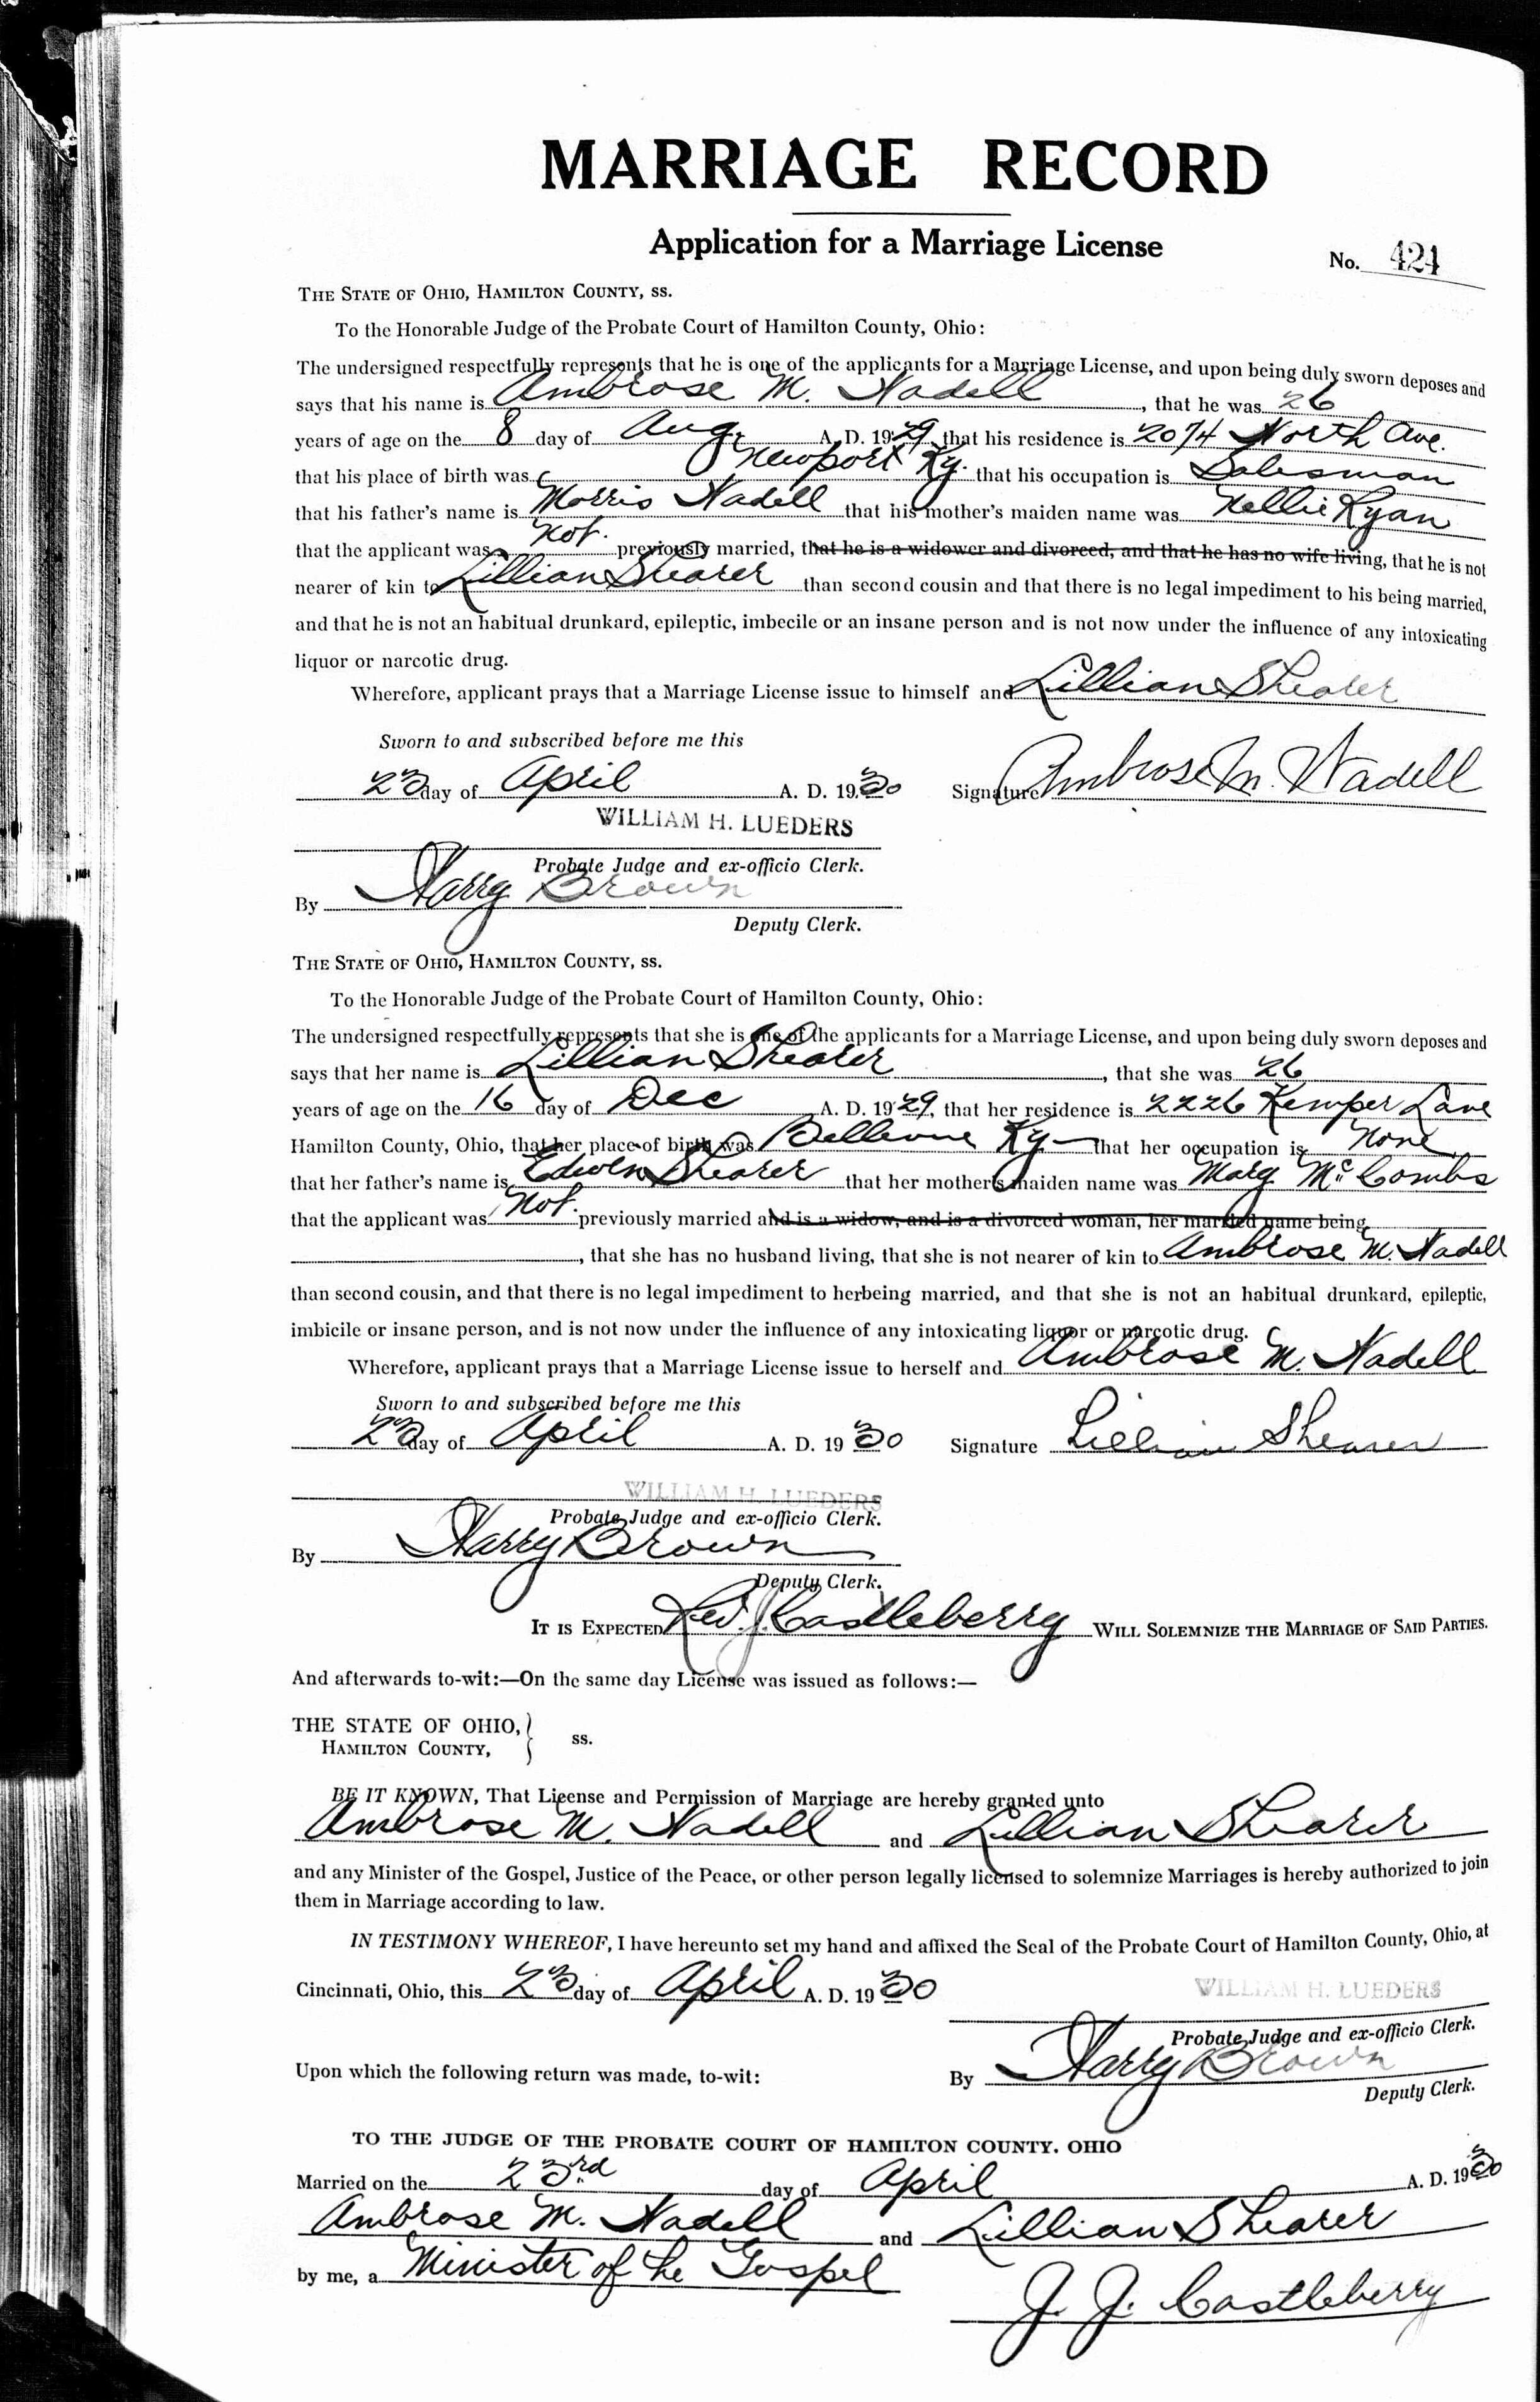 MARRIAGE RECORD
Application for a Marriage License
No. 424
THE STATE OF OHIO, HAMILTON COUNTY, SS.
To the Honorable Judge of the Probate Court of Hamilton County, Ohio:
The undersigned respectfully represents that he is one of the applicants for a Marriage License, and upon being duly sworn deposes and
says that his name is Ambrose M. Nadell, that he was 26
years of age on the 8 day of Aug. A. D. 1929, that his residence is 2074 North Ave.
that his place of birth was Newport Ky. that his occupation is Salesman
that his father's name is Morris Nadell that his mother's maiden name was Nellie Ryan
that the applicant was Not. previously married, that he is a widower and divorced, and that he has no wife living, that he is not
nearer of kin to Lillian Shearer than second cousin and that there is no legal impediment to his being married,
and that he is not an habitual drunkard, epileptic, imbecile or an insane person and is not now under the influence of any intoxicating
liquor or narcotic drug.
Wherefore, applicant prays that a Marriage License issue to himself and Lillian Shearer
Sworn to and subscribed before me this
23 day of April A. D. 1930 Signature Ambrose M. Nadell
WILLIAM H. LUEDERS
Probate Judge and ex-officio Clerk.
By Harry Brown
Deputy Clerk.
THE STATE OF OHIO, HAMILTON COUNTY, SS.
To the Honorable Judge of the Probate Court of Hamilton County, Ohio:
The undersigned respectfully represents that she is one of the applicants for a Marriage License, and upon being duly sworn deposes and
says that her name is Lillian Shearer, that she was 26
years of age on the 16 day of Dec A. D. 1929, that her residence is 2226 Kemper Lane
Hamilton County, Ohio, that her place of birth was Bellevue Ky that her occupation is None
that her father's name is Edwin Shearer that her mother's maiden name was Mary McCombs
that the applicant was Not. previously married and is a widow, and is a divorced woman, her married name being
, that she has no husband living, that she is not nearer of kin to Ambrose M. Nadell
than second cousin, and that there is no legal impediment to herbeing married, and that she is not an habitual drunkard, epileptic,
imbicile or insane person, and is not now under the influence of any intoxicating liquor or narcotic drug.
Wherefore, applicant prays that a Marriage License issue to herself and Ambrose M. Nadell
Sworn to and subscribed before me this
23 day of April A. D. 1930 Signature Lillian Shearer
WILLIAM H. LUEDERS
Probate Judge and ex-officio Clerk.
By Harry Brown
Deputy Clerk.
IT IS EXPECTED Rev. J. Castleberry WILL SOLEMNIZE THE MARRIAGE OF SAID PARTIES.
And afterwards to-wit:—On the same day License was issued as follows:—
THE STATE OF OHIO,
HAMILTON COUNTY, } ss.
BE IT KNOWN, That License and Permission of Marriage are hereby granted unto
Ambrose M. Nadell and Lillian Shearer
and any Minister of the Gospel, Justice of the Peace, or other person legally licensed to solemnize Marriages is hereby authorized to join
them in Marriage according to law.
IN TESTIMONY WHEREOF, I have hereunto set my hand and affixed the Seal of the Probate Court of Hamilton County, Ohio, at
Cincinnati, Ohio, this 23 day of April A. D. 1930
WILLIAM H. LUEDERS
Probate Judge and ex-officio Clerk.
Upon which the following return was made, to-wit: By Harry Brown
Deputy Clerk.
TO THE JUDGE OF THE PROBATE COURT OF HAMILTON COUNTY. OHIO
Married on the 23rd day of April A. D. 1930
Ambrose M. Nadell and Lillian Shearer
by me, a Minister of the Gospel J. J. Castleberry